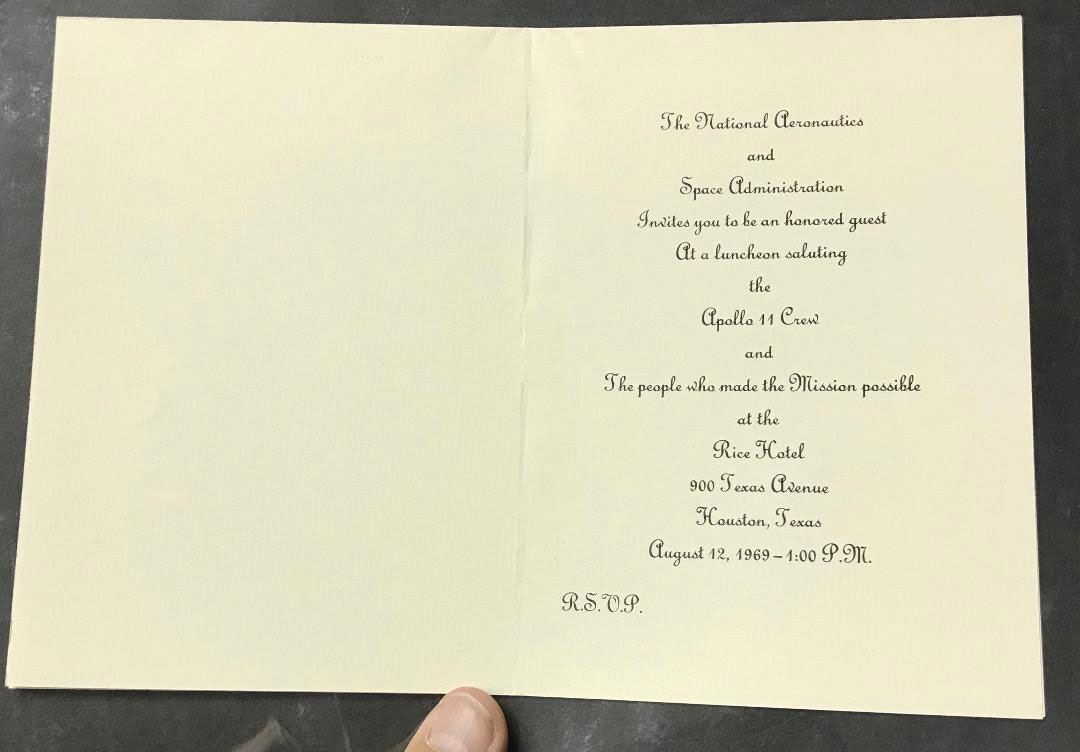 The National Aeronautics
and
Space Administration
Invites you to be an honored guest
At a luncheon saluting
the
Apollo 11 Crew
and
The people who made the Mission possible
at the
Rice Hotel
900 Texas Avenue
Houston, Texas
August 12, 1969 – 1:00 P.M.
R.S.V.P.